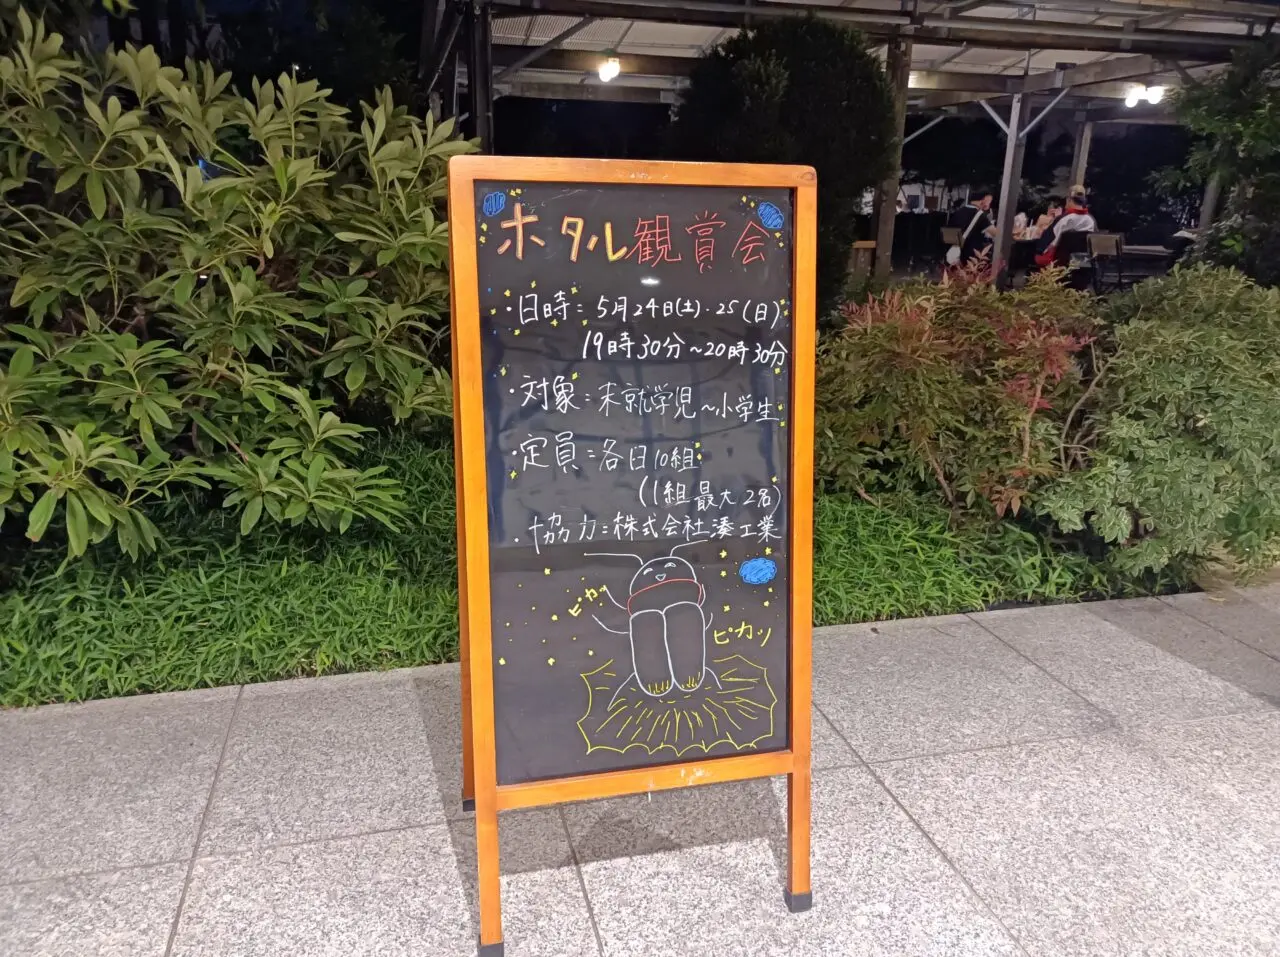 ホタル観賞会
・日時：5月24日(土)・25(日)
19時30分〜20時30分
・対象：未就学児〜小学生
・定員：各日10組
(1組最大2名)
・協力：株式会社湊工業
ピカッ
ピカッ